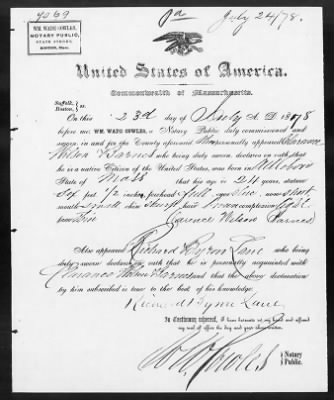 4069
pa July 24/78.
WM. WATO COWLES,
NOTARY PUBLIC,
STATE STREET,
BOSTON, Mass.
United States of America.
Commonwealth of Massachusetts.
Suffolk, ss.
Boston,
On this 23d day of July A. D. 1878
before me, WM. WATO COWLES, a Notary Public duly commissioned and
sworn, in and for the County aforesaid personally appeared Clarence
Wilson Barnes who being duly sworn, declares on oath, that
he is a native Citizen of the United States, born in Attleboro
State of Mass that his age is 24 years, stature
Six feet 1/2 inches, forehead full eyes blue nose short
mouth small chin hair brown complexion light
face thin Clarence Wilson Barnes
Also appeared Richard Byron Lane who being
duly sworn declares on oath that he is personally acquainted with
Clarence Wilson Barnes and that the above declaration
by him subscribed is true to the best of his knowledge.
Richard Byron Lane
In testimony whereof, I have hereunto set my hand and affixed
my seal of office the day and year above written.
Notary
Public.